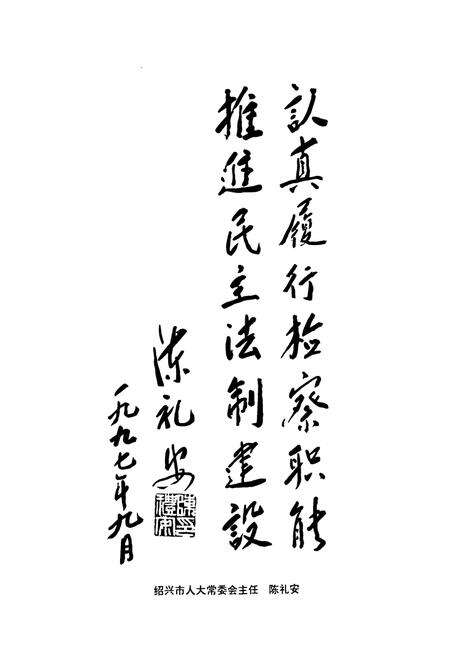 认真履行检察职能
推進民主法制建設
陈礼安
一九九七年九月
绍兴市人大常委会主任 陈礼安